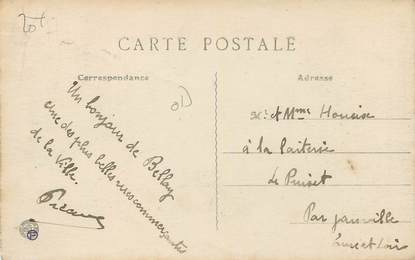 CARTE POSTALE
Correspondance
Adresse
Un bonjour de Bellay
une des plus belles rues commerçantes
de la Ville.
Mr et Mme Housise
à la laiterie
Le Puiset
Par Janville
Eure et Loir